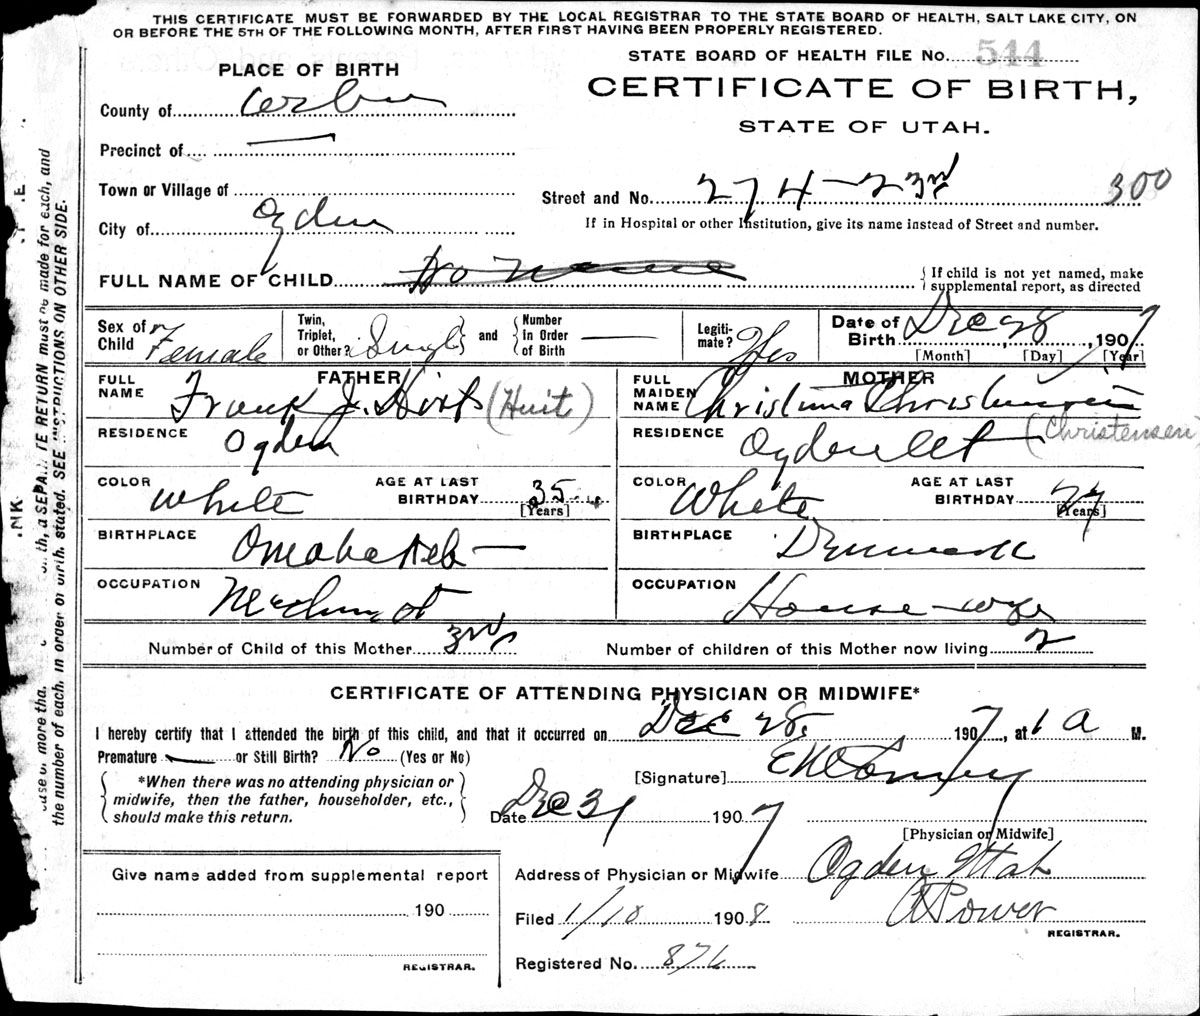 THIS CERTIFICATE MUST BE FORWARDED BY THE LOCAL REGISTRAR TO THE STATE BOARD OF HEALTH, SALT LAKE CITY, ON
OR BEFORE THE 5TH OF THE FOLLOWING MONTH, AFTER FIRST HAVING BEEN PROPERLY REGISTERED.
STATE BOARD OF HEALTH FILE No. 544
PLACE OF BIRTH
CERTIFICATE OF BIRTH,
STATE OF UTAH.
County of
Precinct of —
Town or Village of
Street and No. 274-23rd 300
City of Ogden
If in Hospital or other Institution, give its name instead of Street and number.
FULL NAME OF CHILD No Name
{ If child is not yet named, make
supplemental report, as directed
Sex of Child Female
Twin, Triplet, or Other? Singl } and { Number In Order of Birth —
Legiti- mate? Yes
Date of Birth Dec 28, 1907
[Month] [Day] [Year]
FATHER
FULL NAME Frank J. (Huit)
RESIDENCE Ogden
COLOR White
AGE AT LAST BIRTHDAY 35
[Years]
BIRTHPLACE Omaha Neb —
OCCUPATION
MOTHER
FULL MAIDEN NAME Christina
(Christensen
RESIDENCE Ogden Ut
COLOR White
AGE AT LAST BIRTHDAY 27
[Years]
BIRTHPLACE Denmark
OCCUPATION House-wife
Number of Child of this Mother 3rd
Number of children of this Mother now living 2
CERTIFICATE OF ATTENDING PHYSICIAN OR MIDWIFE*
I hereby certify that I attended the birth of this child, and that it occurred on Dec 28, 1907, at 1 a M.
Premature — or Still Birth? No (Yes or No)
*When there was no attending physician or
midwife, then the father, householder, etc.,
should make this return.
[Signature]
Date Dec 31 1907
[Physician or Midwife]
Give name added from supplemental report
190
REGISTRAR.
Address of Physician or Midwife Ogden Utah
Filed 1/10 1908
Power
REGISTRAR.
Registered No. 876
a SEPARATE RETURN must be made for each, and
the number of each, in order of birth, stated. SEE INSTRUCTIONS ON OTHER SIDE.